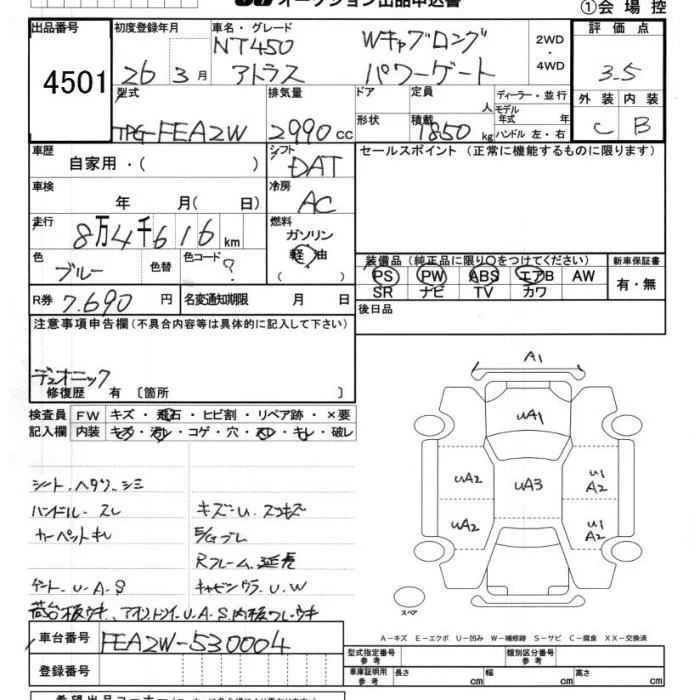 オークション出品申込書
①会場控
出品番号 4501
初度登録年月 26 3月
車名・グレード NT450 アトラス
Wキャブロング パワーゲート
2WD・4WD
評価点 3.5
外装 C 内装 B
型式 TPG-FEA2W
排気量 2990cc
ドア
形状
定員 人
積載 1850kg
ディーラー・並行
モデル年式 年
ハンドル 左・右
車歴 自家用・( )
シフト DAT
セールスポイント (正常に機能するものに限ります)
車検 年 月( 日)
冷房 AC
走行 8万4千616km
燃料 ガソリン 軽油 ( )
色 ブルー 色替 色コード ?
装備品 (純正品に限り○をつけてください)
PS PW ABS エアB AW
SR ナビ TV カワ
新車保証書 有・無
R券 7,690円
名変通知期限 月 日
後日品
注意事項申告欄(不具合内容等は具体的に記入して下さい)
デュオニック
修復歴 有 〔箇所 〕
検査員記入欄
FW キズ・飛石・ヒビ割・リペア跡・×要
内装 キズ・汚レ・コゲ・穴・スレ・キレ・破レ
シート、ヘタリ、シミ
ハンドル・スレ
キズ・U、スリキズ
カーペットキレ
E/Gブレ
Rフレーム延長
ゲート、U、A、S
キャビンウラ、U、W
荷台板ウキ、アオリ、U、A、S、内板ワレ・ウキ
A1
UA1
UA2 UA3 U1 A2
UA2 U1 A2
スペア
A-キズ E-エクボ U-凹み W-補修跡 S-サビ C-腐食 XX-交換済
車台番号 FEA2W-530004
登録番号
型式指定番号 参考
類別区分番号 参考
車庫証明用 参考 長さ cm 幅 cm 高さ cm